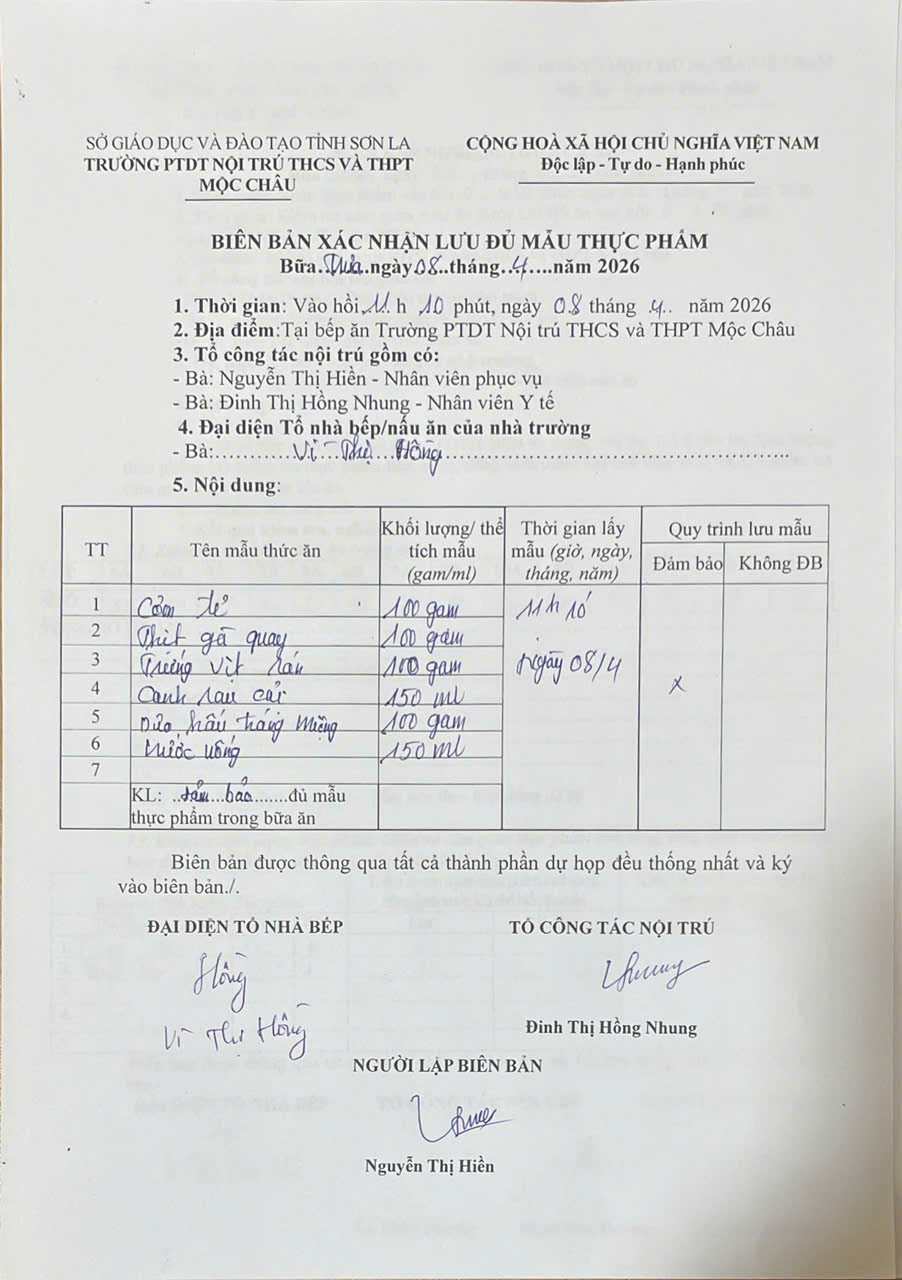 SỞ GIÁO DỤC VÀ ĐÀO TẠO TỈNH SƠN LA
TRƯỜNG PTDT NỘI TRÚ THCS VÀ THPT
MỘC CHÂU
CỘNG HOÀ XÃ HỘI CHỦ NGHĨA VIỆT NAM
Độc lập - Tự do - Hạnh phúc
BIÊN BẢN XÁC NHẬN LƯU ĐỦ MẪU THỰC PHẨM
Bữa..Trưa..ngày 08..tháng..4....năm 2026
1. Thời gian: Vào hồi 11. h 10 phút, ngày 08 tháng 4.. năm 2026
2. Địa điểm:Tại bếp ăn Trường PTDT Nội trú THCS và THPT Mộc Châu
3. Tổ công tác nội trú gồm có:
- Bà: Nguyễn Thị Hiền - Nhân viên phục vụ
- Bà: Đinh Thị Hồng Nhung - Nhân viên Y tế
4. Đại diện Tổ nhà bếp/nấu ăn của nhà trường
- Bà:............Vì Thị Hồng............
5. Nội dung:
TT
Tên mẫu thức ăn
Khối lượng/ thể
tích mẫu
(gam/ml)
Thời gian lấy
mẫu (giờ, ngày,
tháng, năm)
Quy trình lưu mẫu
Đảm bảo
Không ĐB
1 Cơm tẻ 100 gam 11h 10
2 Thịt gà quay 100 gam
3 Trứng vịt rán 100 gam ngày 08/4
4 Canh rau cải 150 ml x
5 Dưa hấu tráng miệng 100 gam
6 Nước uống 150 ml
7
KL: ..đảm bảo......đủ mẫu
thực phẩm trong bữa ăn
Biên bản được thông qua tất cả thành phần dự họp đều thống nhất và ký
vào biên bản./.
ĐẠI DIỆN TỔ NHÀ BẾP
TỔ CÔNG TÁC NỘI TRÚ
Hồng
Nhung
Vì Thị Hồng
Đinh Thị Hồng Nhung
NGƯỜI LẬP BIÊN BẢN
Nguyễn Thị Hiền